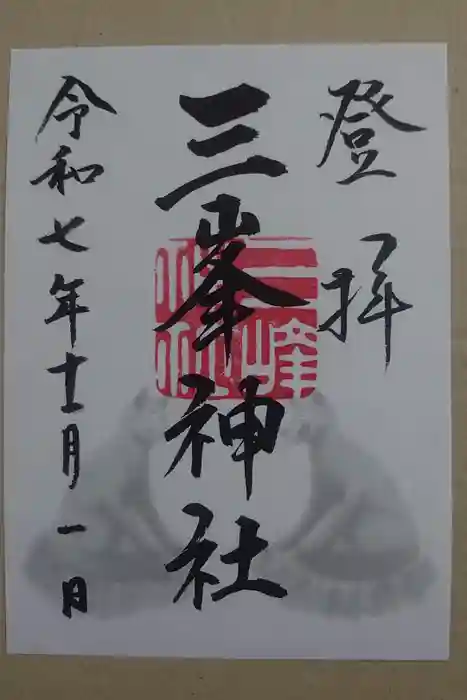 登拝
三峯神社
三峰
神社
令和七年十二月一日